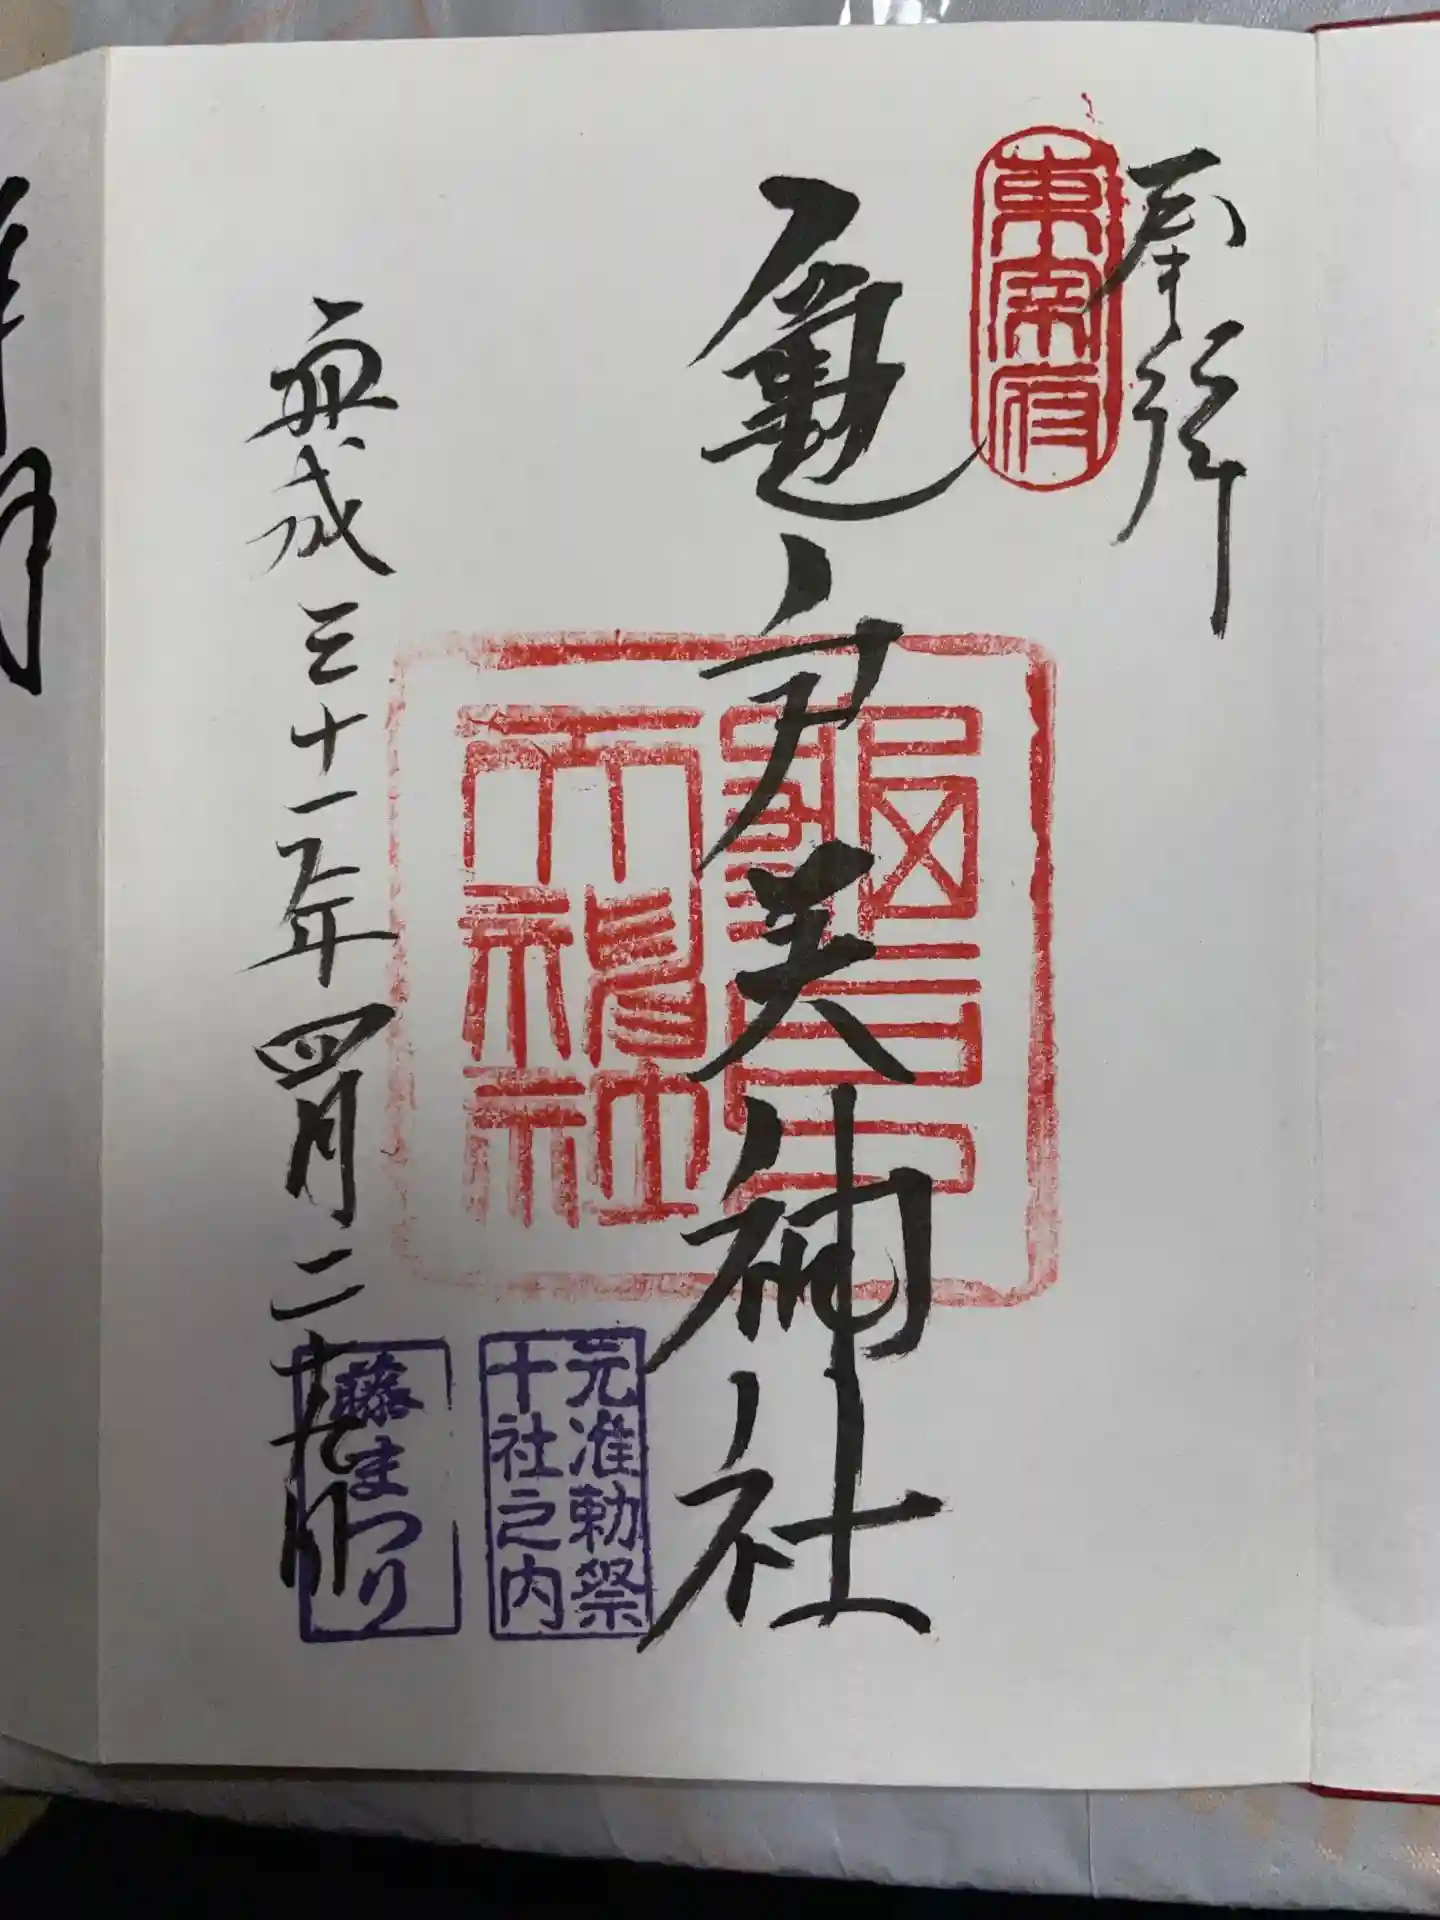 奉拝
東宰府
亀戸天神社
亀戸天神社
元准勅祭
十社之内
平成三十一年四月二十九日
藤まつり